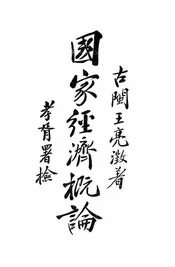 古閩王亮澂著
國家經濟概論
孝胥署檢